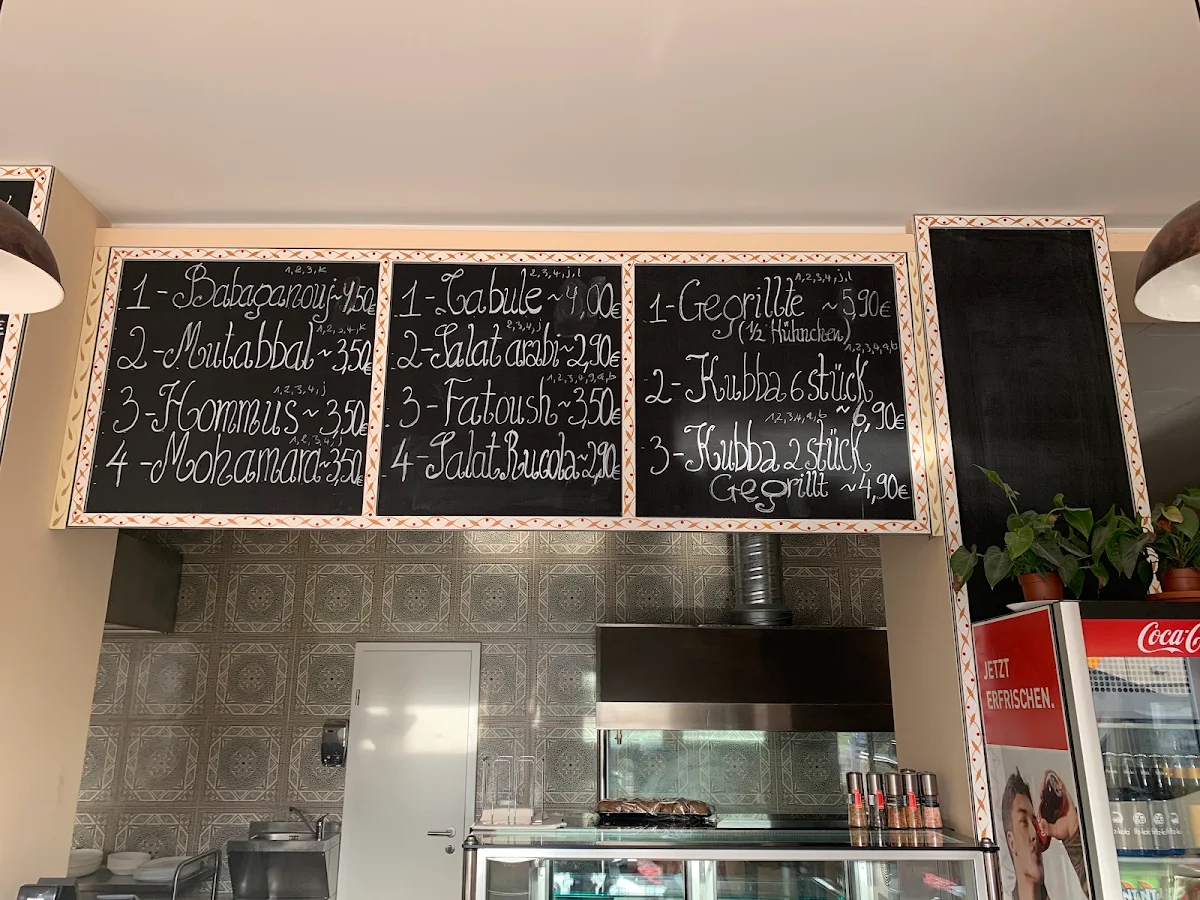 1,2,3,K
1-Babaganouj~4,50€
1,2,3,4,K
2-Mutabbal~3,50€
1,2,3,4,j
3-Hommus~3,50€
1,2,3,4,j
4-Mohamara~3,50€
2,3,4,j,l
1-Tabule~4,00€
2,3,4,j
2-Salat arabi~2,90€
1,2,3,4,g,a,b
3-Fatoush~3,50€
4-Salat Rucola~2,90€
1,2,3,4,j,l
1-Gegrillte ~5,90€
(1/2 Hühnchen)
1,2,3,4,a,b
2-Kubba 6 stück
~6,90€
1,2,3,4,a,b
3-Kubba 2 stück
Gegrillt ~4,90€
JETZT
ERFRISCHEN.